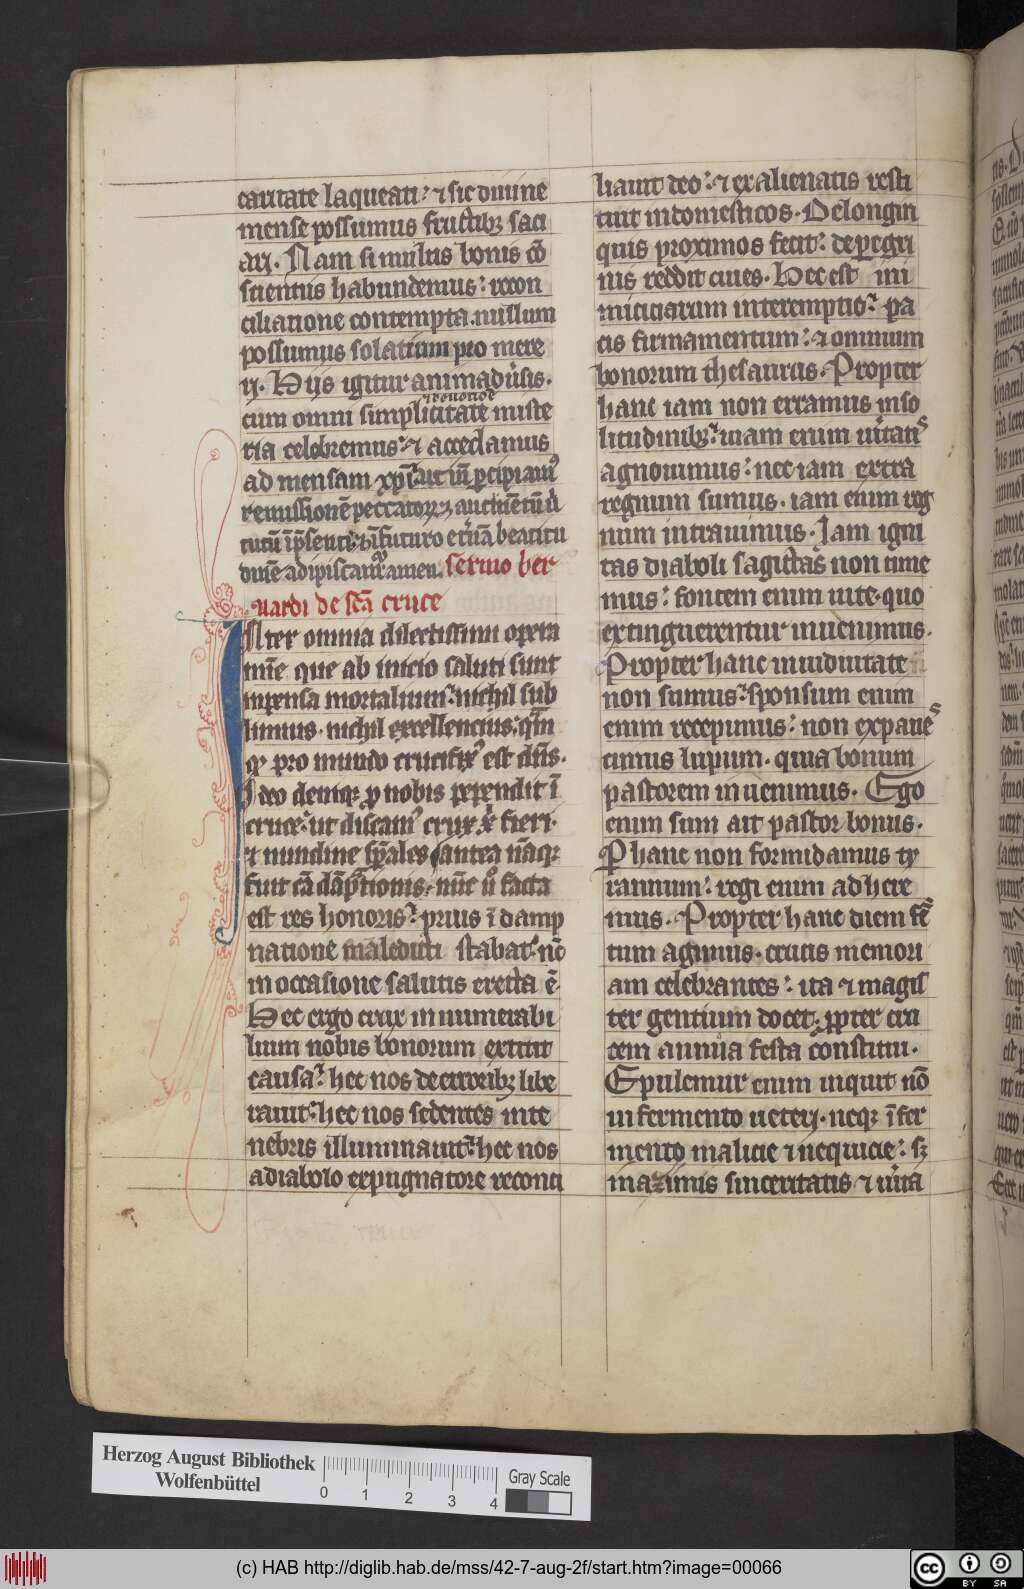 caritate laqueati: ⁊ sic diuine
mense possumus fructibꝫ saci
ari. Nam si multis bonis cō
scientiis habundemus: recon
ciliatione contempta. nullum
possumus solatium pro mere
ri. Hijs igitur animaduˢis.
cum omni simplicitate miste
ria celebremus: ⁊ accedamus
ad mensam xp̄i: ut
remissionē peccatoꝝ
futuro et̄nā beatitu
dinē adipiscam̄ amen. sermo ber
nardi de scā cruce
Inter omnia dilectissimi opera
mīe que ab inicio saluti sunt
inpensa mortalium: nichil sub
limius. nichil excellencius; qm̄
qꝫ pro mundo crucifixꝰ est dn̄s.
Ideo deniqꝫ ꝓ nobis pependit ī
cruce: ut discamꝰ crux xp̄i fieri.
⁊ nundine sp̄ales antea nāqꝫ
fuit cā dāpnationis. nūc ū facta
est res honoris: prius ī damp
natione maledicti stabat: nō
in occasione salutis erecta ē.
Hec ergo crux innumerabi
lium nobis bonorum extitit
causa: hec nos de erroribꝫ libe
rauit: hec nos sedentes in te
nebris illuminauit: hec nos
a diabolo expugnatore reconci
liauit deo: ⁊ ex alienatis resti
tuit in domesticos. De longin
quis proximos fecit: de peregri
nis reddit ciues. Hec est ini
miciciarum interemptio: pa
cis firmamentum: ⁊ omnium
bonorum thesaurus. Propter
hanc iam non erramus in so
litudinibꝫ: uiam enim uˢitatis
agnouimus: nec iam extra
regnum sumus. iam enim reg
num intrauimus. Iam igni
tas diaboli sagittas non time
mus: fontem enim uite. quo
extinguerentur inuenimus.
Propter hanc in uiduitate
non sumus: sponsum enim
enim recepimus: non expaues
cimus lupum. quia bonum
pastorem inuenimus. Ego
enim sum ait pastor bonus.
P hanc non formidamus ty
rannum: regi enim adhere
mus. Propter hanc diem fes
tum agimus. crucis memori
am celebrantes: ita ⁊ magis
ter gentium docet. ꝓpter cru
cem annua festa constitui.
Epulemur enim inquit nō
in fermento ueteri. neqꝫ ī fer
mento malicie ⁊ nequicie: sꝫ
in azimis sinceritatis ⁊ uˢita
Herzog August Bibliothek
Wolfenbüttel
0 1 2 3 4
Gray Scale
(c) HAB http://diglib.hab.de/mss/42-7-aug-2f/start.htm?image=00066
cc BY SA